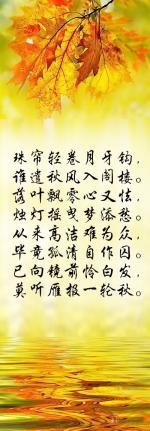 珠帘轻卷月牙钩,
谁遣秋风入阁楼。
落叶飘零心又怯,
烛灯摇曳梦添愁。
从来高洁难为众,
毕竟孤清自作囚。
已向镜前怜白发,
莫听雁报一轮秋。